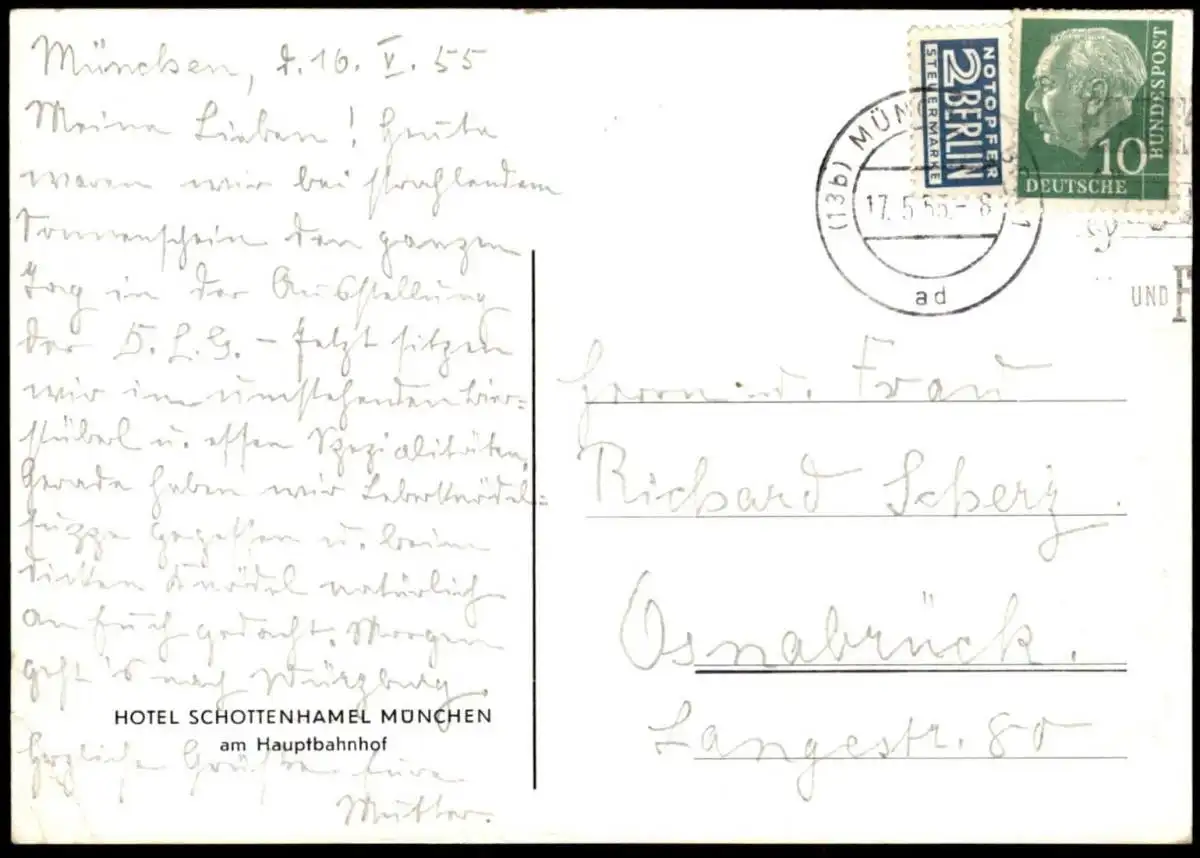 München, d. 16. V. 55
Meine Lieben! Heute
waren wir bei strahlendem
Sonnenschein den ganzen
Tag in der Ausstellung
der D.L.G. – Jetzt sitzen
wir im umstehenden Bier-
stüberl u. essen Spezialitäten.
Gerade haben wir Leberknödel-
suppe gegessen u. beim
dicken Knödel natürlich
an Euch gedacht. Morgen
geht's nach Würzburg.
HOTEL SCHOTTENHAMEL MÜNCHEN
am Hauptbahnhof
Herzliche Grüße Eure
Mutter.
NOTOPFER
2 BERLIN
STEUERMARKE
DEUTSCHE
BUNDESPOST
10
(13b) MÜNC
17. 5. 55. - 8
ad
UND F
Herrn u. Frau
Richard Scherz.
Osnabrück.
Langestr. 80